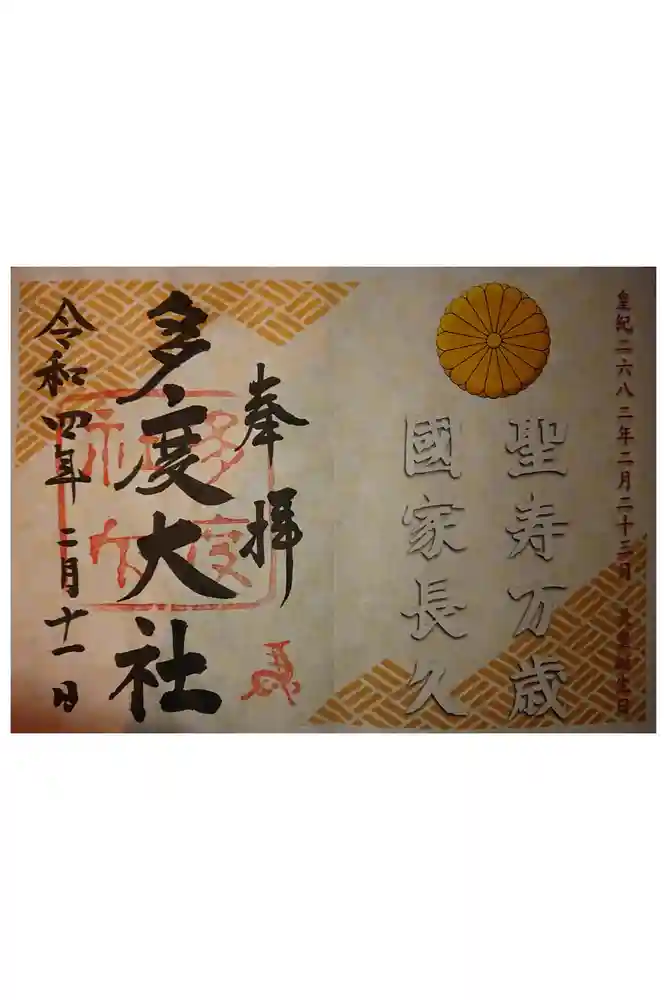 皇紀二六八二年二月二十三日 天皇誕生日
聖寿万歳
國家長久
奉拝
多度大社
令和四年二月十一日